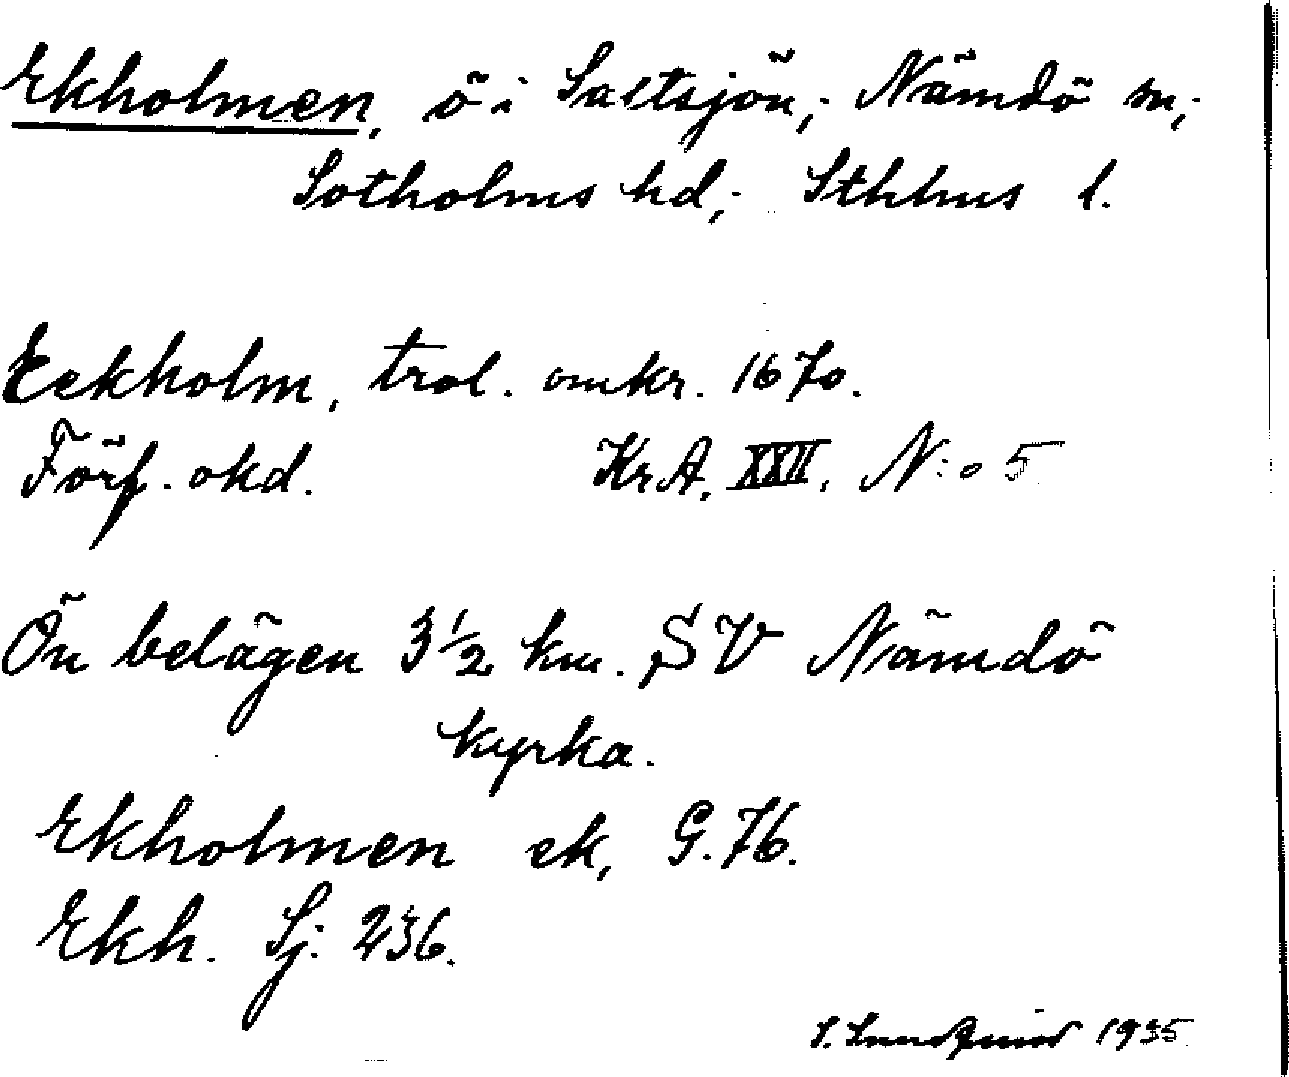 Ekholmen, ö i Saltsjön, Nämdö sn,
Sotholms hd, Sthlms l.
Eekholm, trol. omkr. 1670.
Förf. okd. Kr.A. XXII. N:o 5
Ön belägen 3 1/2 km. SV Nämdö
kyrka.
Ekholmen ek, G. 76.
Ekh. Sj. 236.
S. Lundqvist 1935